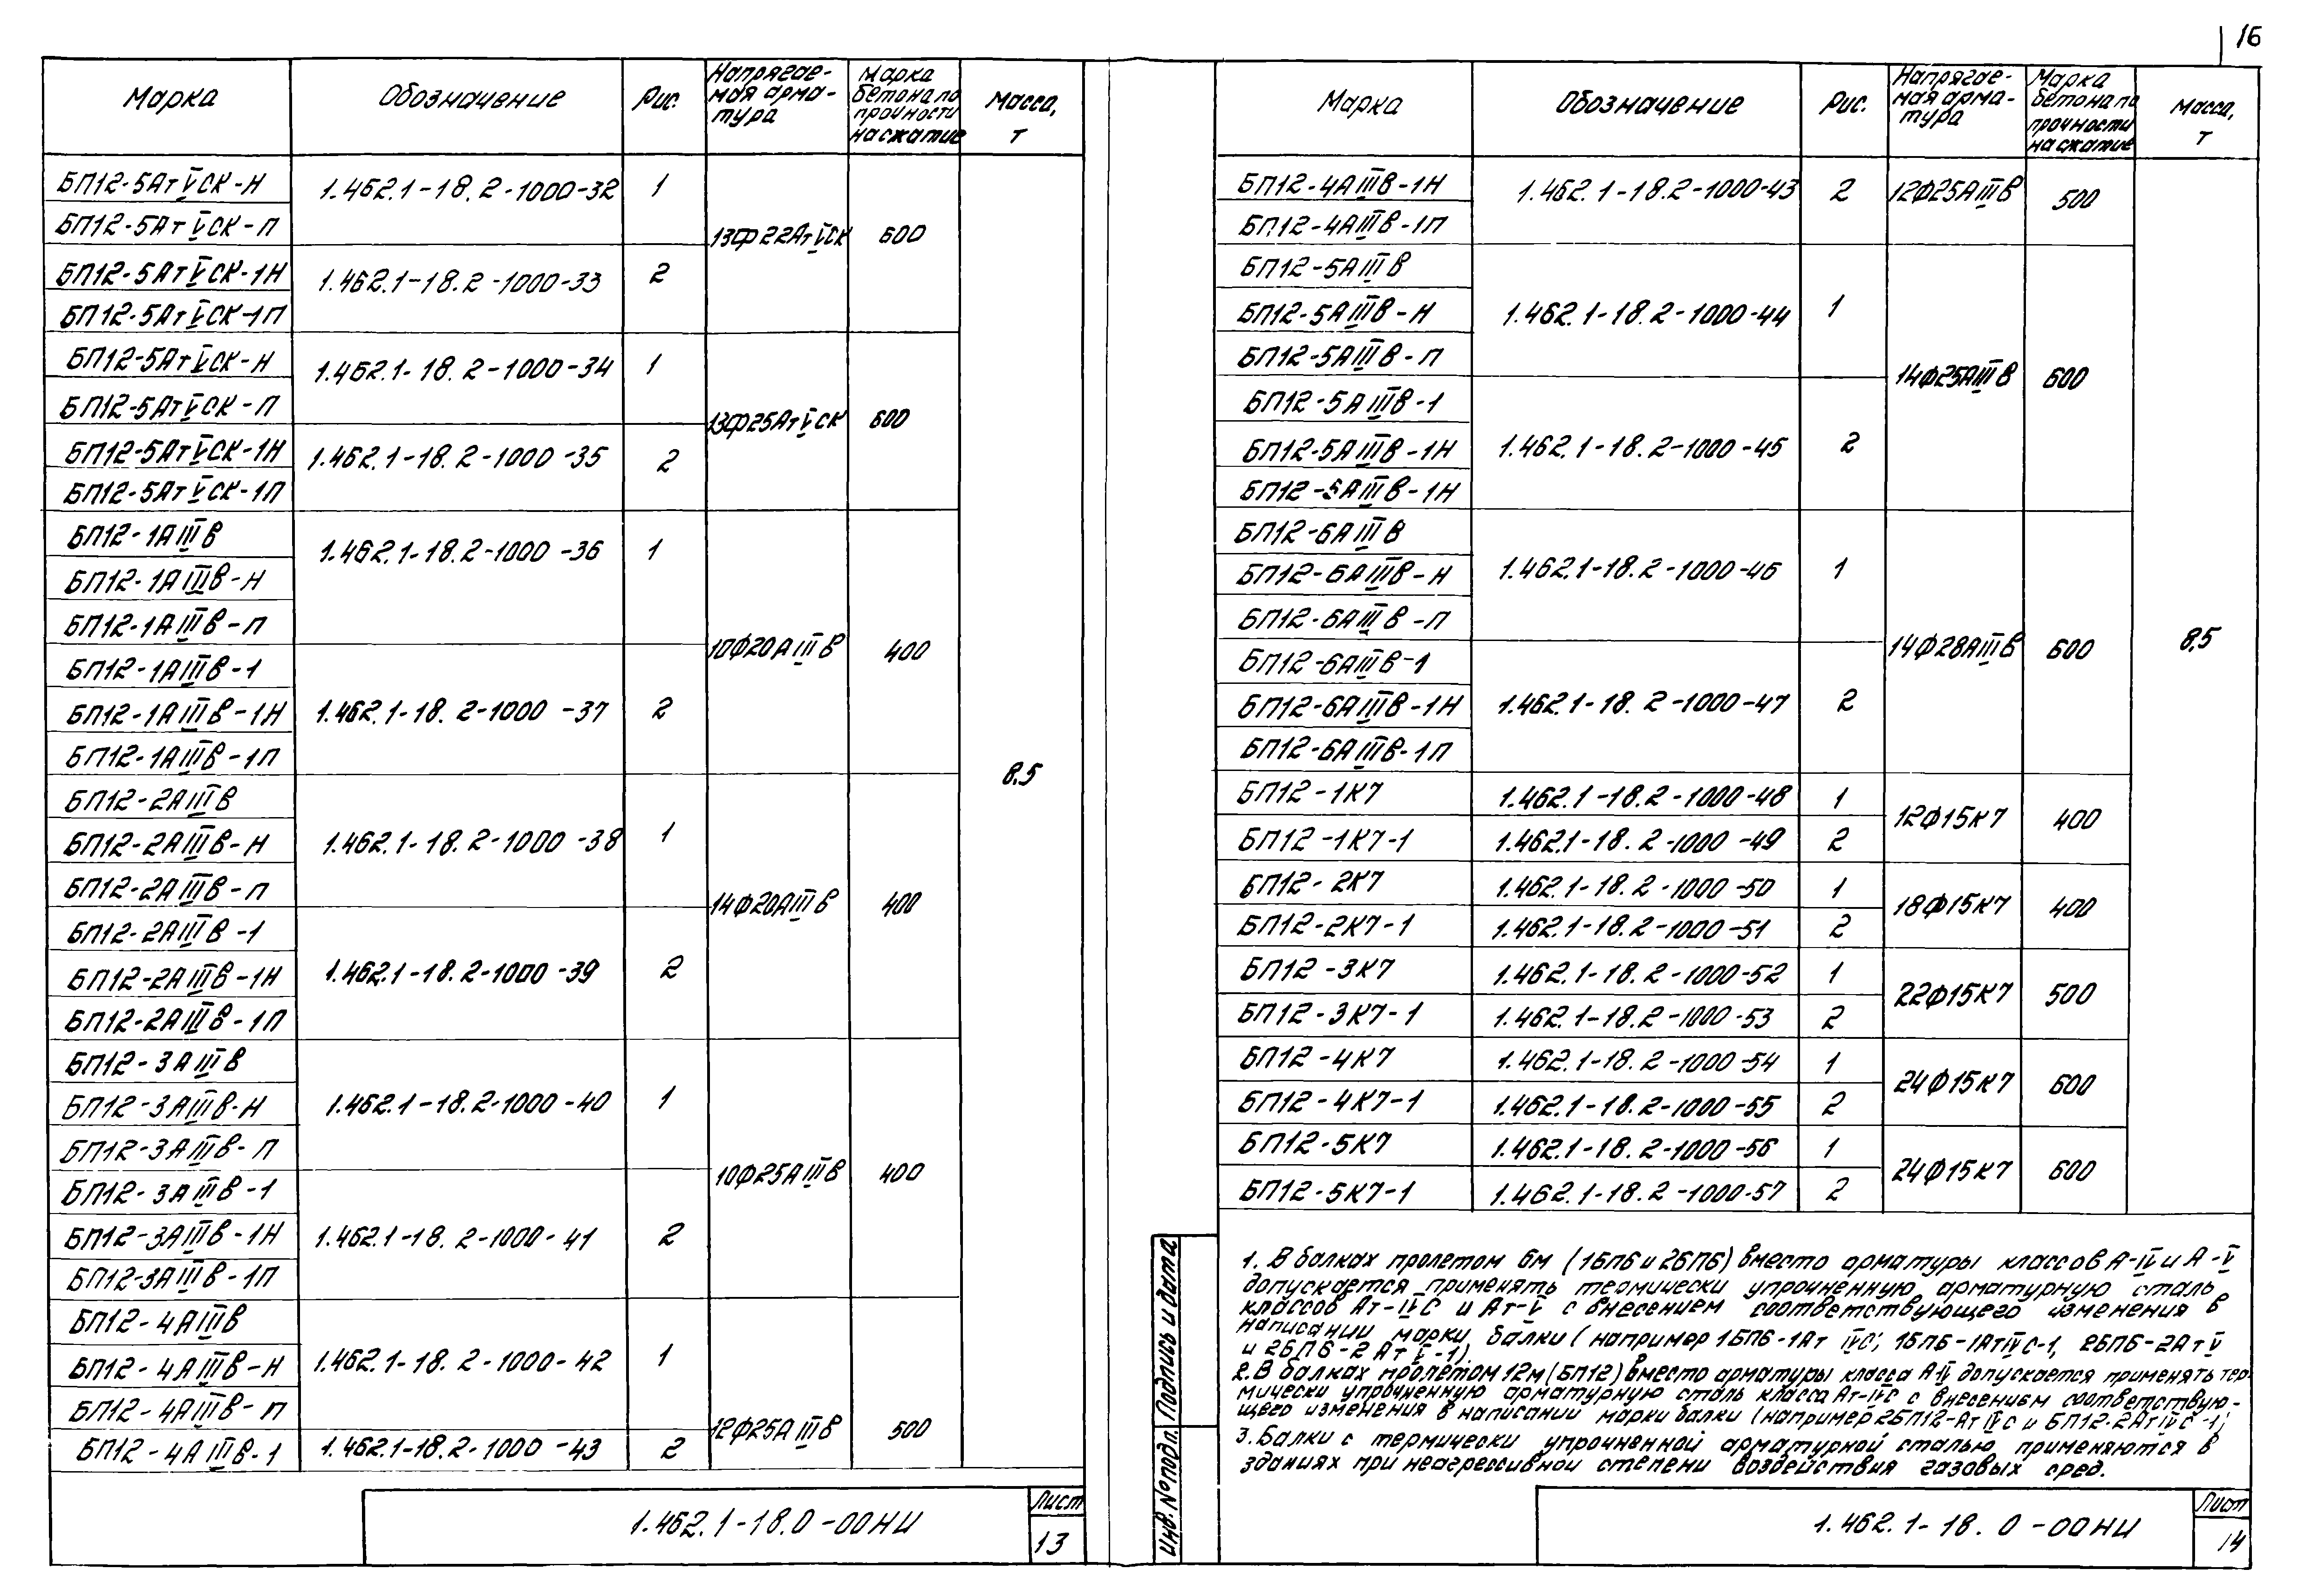 16
Марка Обозначение Рис. Напрягае-мая арма-тура Марка бетона по прочности на сжатие Масса, т
БП12-5АтV̲СК-Н 1.462.1-18.2-1000-32 1 13ф22АтVСК 600 8.5
БП12-5АтVСК-П
БП12-5АтVСК-1Н 1.462.1-18.2-1000-33 2
БП12-5АтVСК-1П
БП12-5АтVСК-Н 1.462.1-18.2-1000-34 1 13ф25АтVСК 600
БП12-5АтVСК-П
БП12-5АтVСК-1Н 1.462.1-18.2-1000-35 2
БП12-5АтVСК-1П
БП12-1АIIIв 1.462.1-18.2-1000-36 1 10ф20АIIIв 400
БП12-1АIIIв-Н
БП12-1АIIIв-П
БП12-1АIIIв-1
БП12-1АIIIв-1Н 1.462.1-18.2-1000-37 2
БП12-1АIIIв-1П
БП12-2АIIIв
БП12-2АIIIв-Н 1.462.1-18.2-1000-38 1 14ф20АIIIв 400
БП12-2АIIIв-П
БП12-2АIIIв-1
БП12-2АIIIв-1Н 1.462.1-18.2-1000-39 2
БП12-2АIIIв-1П
БП12-3АIIIв
БП12-3АIIIв-Н 1.462.1-18.2-1000-40 1 10ф25АIIIв 400
БП12-3АIIIв-П
БП12-3АIIIв-1
БП12-3АIIIв-1Н 1.462.1-18.2-1000-41 2
БП12-3АIIIв-1П
БП12-4АIIIв
БП12-4АIIIв-Н 1.462.1-18.2-1000-42 1 12ф25АIIIв 500
БП12-4АIIIв-П
БП12-4АIIIв-1 1.462.1-18.2-1000-43 2
1.462.1-18.0-00НИ
Лист
13
Марка Обозначение Рис. Напрягае-мая арма-тура Марка бетона по прочности на сжатие Масса, т
БП12-4АIIIв-1Н 1.462.1-18.2-1000-43 2 12ф25АIIIв 500 8,5
БП12-4АIIIв-1П
БП12-5АIIIв
БП12-5АIIIв-Н 1.462.1-18.2-1000-44 1 14ф25АIIIв 600
БП12-5АIIIв-П
БП12-5АIIIв-1
БП12-5АIIIв-1Н 1.462.1-18.2-1000-45 2
БП12-5АIIIв-1Н
БП12-6АIIIв
БП12-6АIIIв-Н 1.462.1-18.2-1000-46 1 14ф28АIIIв 600
БП12-6АIIIв-П
БП12-6АIIIв-1
БП12-6АIIIв-1Н 1.462.1-18.2-1000-47 2
БП12-6АIIIв-1П
БП12-1К7 1.462.1-18.2-1000-48 1 12ф15К7 400
БП12-1К7-1 1.462.1-18.2-1000-49 2
БП12-2К7 1.462.1-18.2-1000-50 1 18ф15К7 400
БП12-2К7-1 1.462.1-18.2-1000-51 2
БП12-3К7 1.462.1-18.2-1000-52 1 22ф15К7 500
БП12-3К7-1 1.462.1-18.2-1000-53 2
БП12-4К7 1.462.1-18.2-1000-54 1 24ф15К7 600
БП12-4К7-1 1.462.1-18.2-1000-55 2
БП12-5К7 1.462.1-18.2-1000-56 1 24ф15К7 600
БП12-5К7-1 1.462.1-18.2-1000-57 2
1. В балках пролетом 6м (1БП6 и 2БП6) вместо арматуры классов А-IV и А-V
допускается применять термически упрочненную арматурную сталь
классов Ат-IVС и Ат-V с внесением соответствующего изменения в
написании марки балки (например 1БП6-1Ат IVС; 1БП6-1АтIVС-1, 2БП6-2АтV
и 2БП6-2АтV-1).
2. В балках пролетом 12м (БП12) вместо арматуры класса А-IV допускается применять тер-
мически упрочненную арматурную сталь класса Ат-IVС с внесением соответствую-
щего изменения в написании марки балки (например 2БП12-АтIVС и БП12-2АтIVС-1)
3. Балки с термически упрочненной арматурной сталью применяются в
зданиях при неагрессивной степени воздействия газовых сред.
Инв. № подл. Подпись и дата
1.462.1-18.0-00НИ
Лист
14